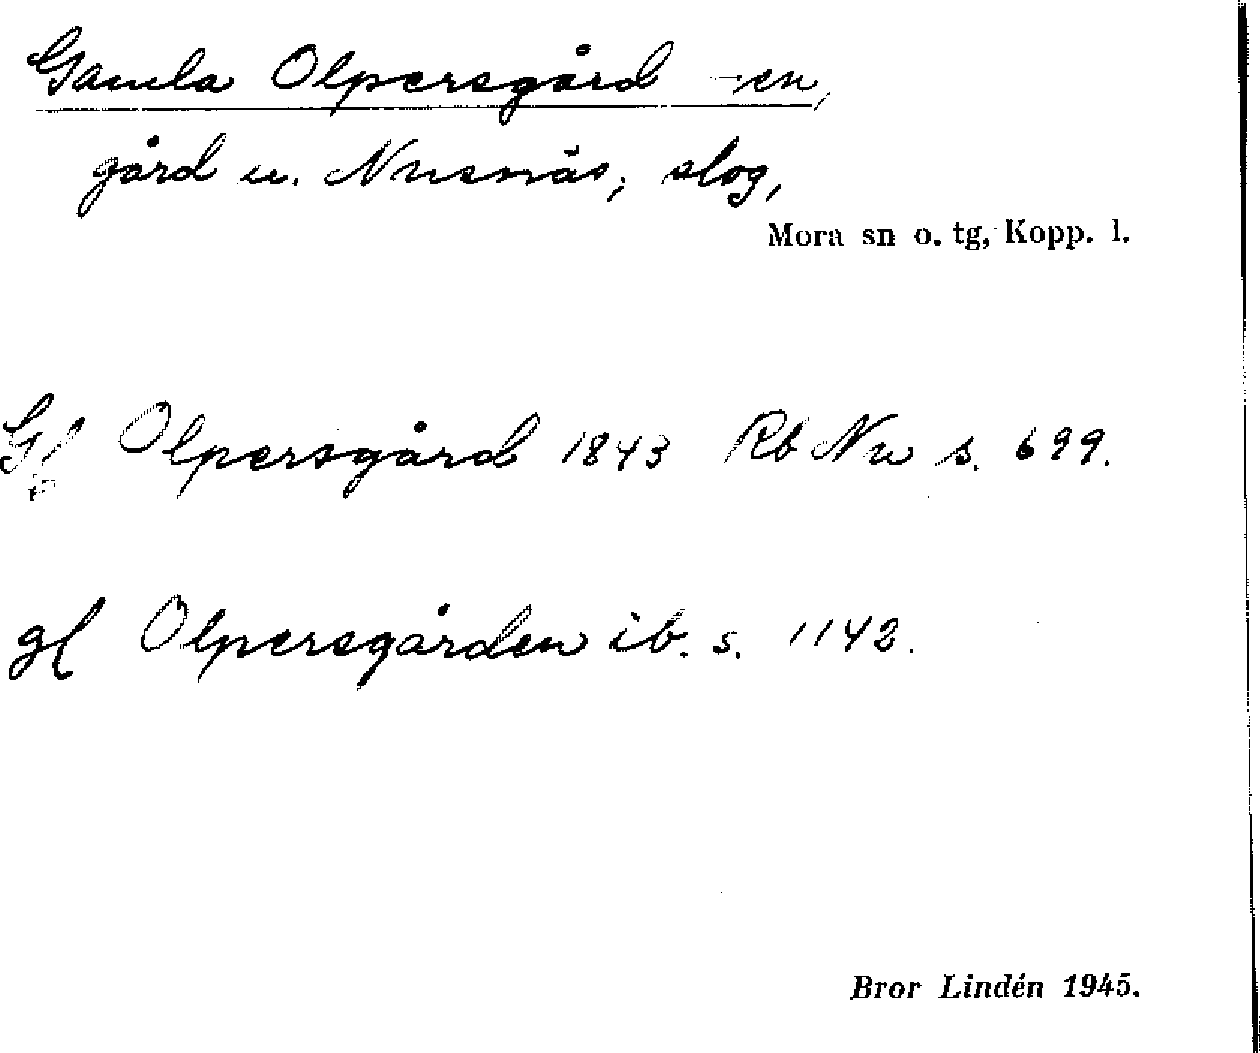 Gamla Olpersgård -en,
gård u. Nusnäs; slog,
Mora sn o. tg, Kopp. l.
Gl Olpersgård 1843 Rb Nu s. 699.
gl Olpersgården ib. s. 1142.
Bror Lindén 1945.